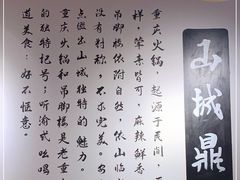 山城鼎
重庆火锅，起源于民间，百
样，荤素皆可，麻辣鲜香
吊脚楼依附自然，依山临
没有对称，不尔完美。
点缀出山城独特的魅力。
重庆火锅和吊脚楼是老重
的独特记号；听渝式吆喝
道美食：好不惬意。